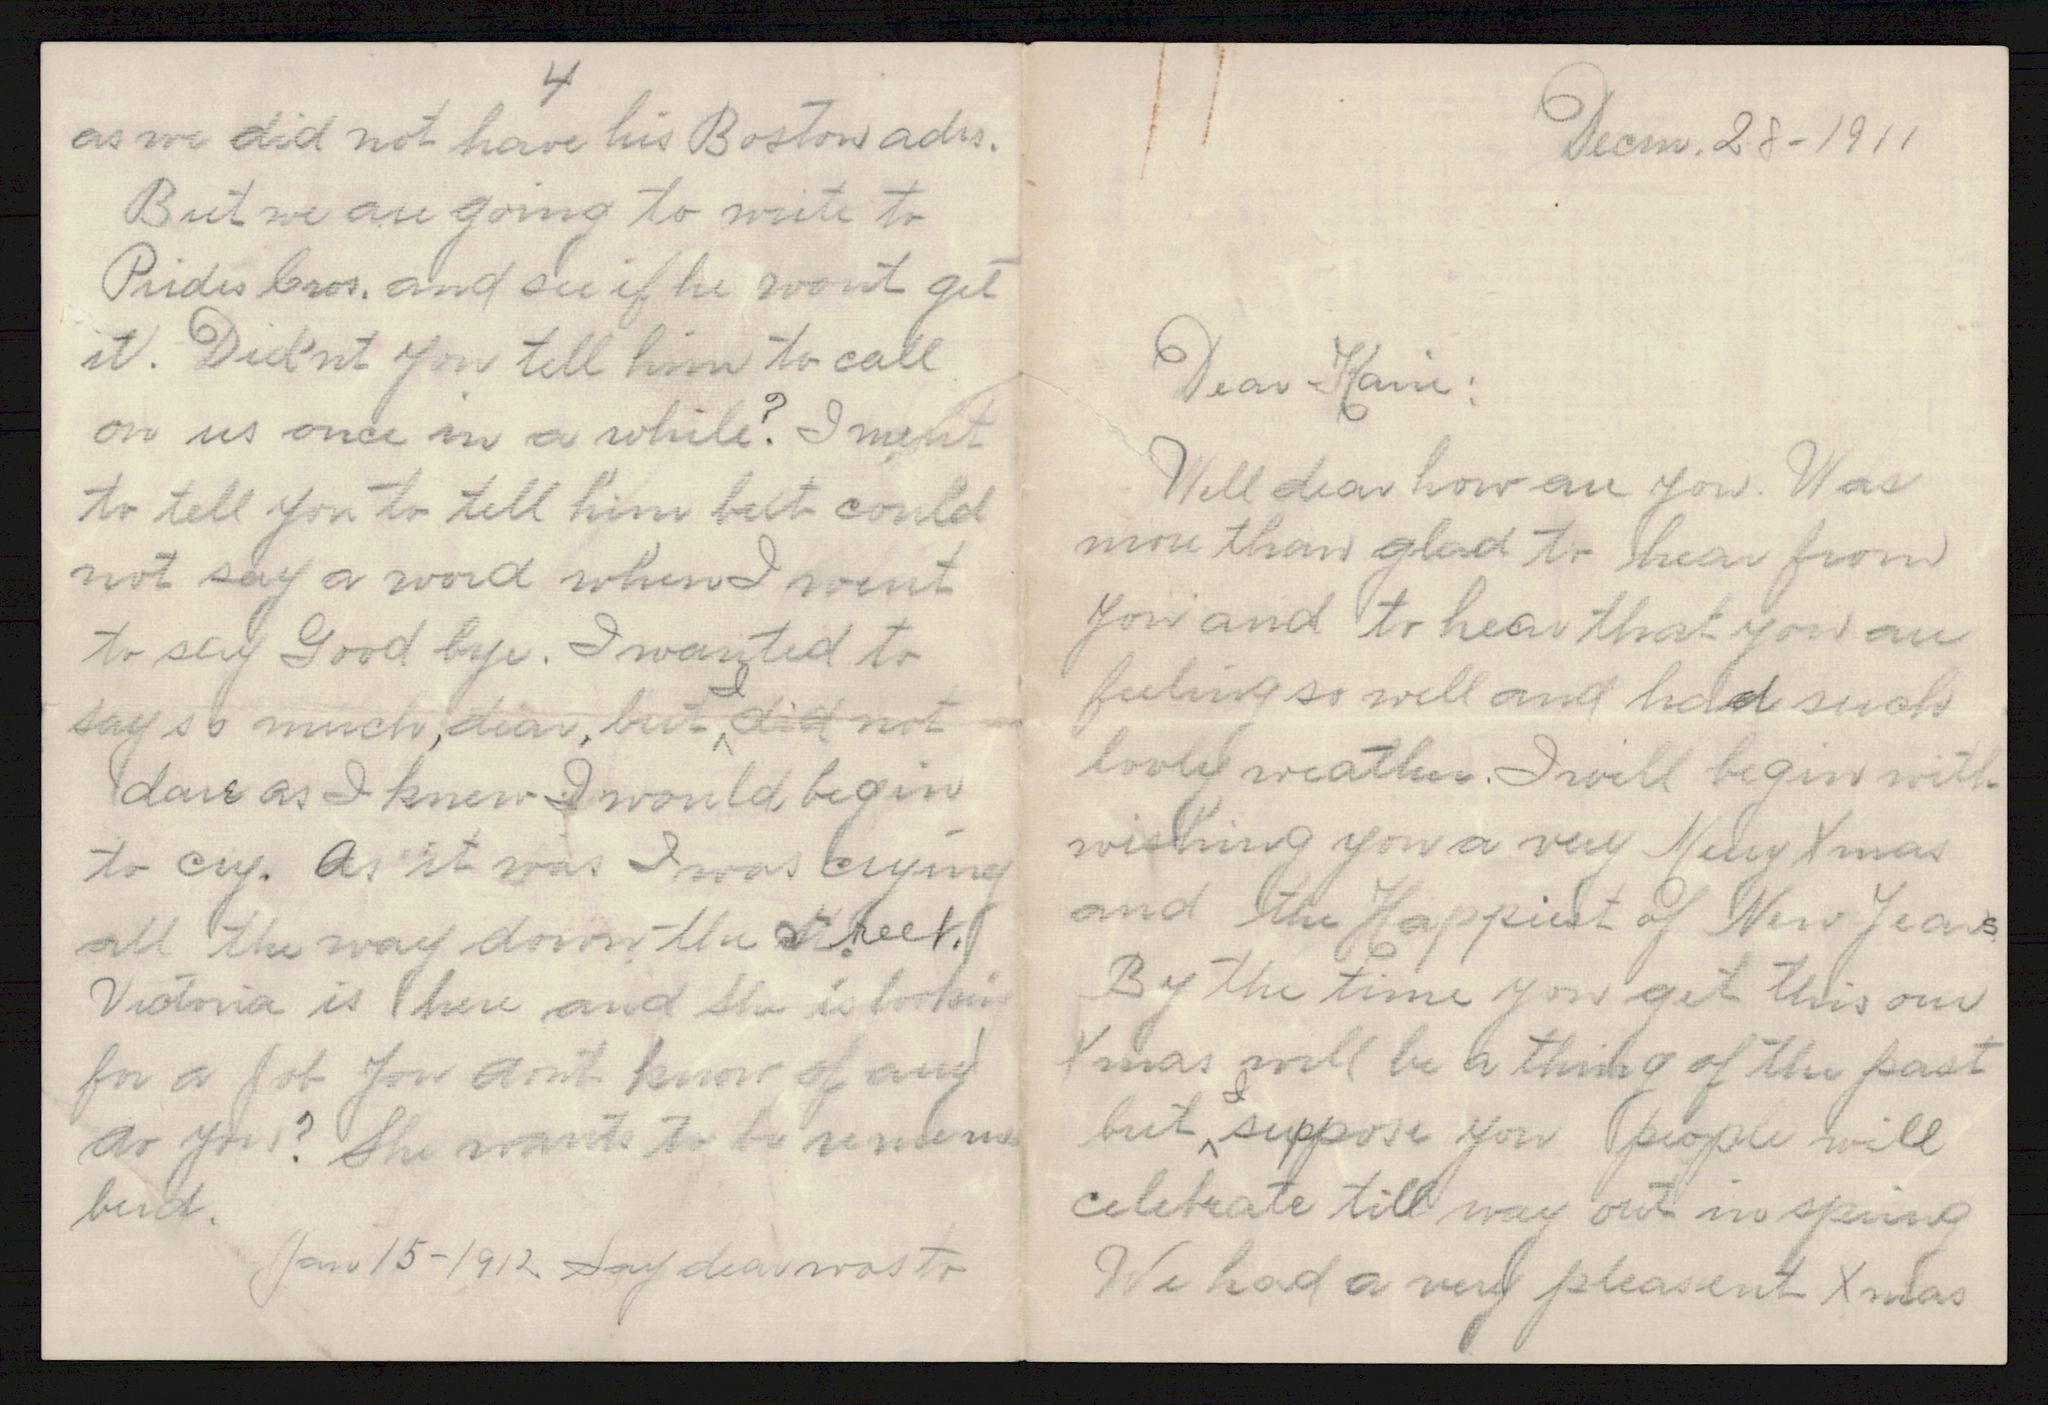 4
as we did not have his Boston adrs.
But we are going to write to
Prides bros. and see if he wont get
it. Did'nt you tell him to call
on us once in a while? I ment
to tell you to tell him but could
not say a word when I went
to say Good bye. I wanted to
say so much, dear, but I did not
dare as I knew I would begin
to cry. As it was I was crying
all the way down the street.
Victoria is here and she is lookin
for a job You dont know of any
do you? She wants to be remem
berd.
Jan 15-1912 Say dear was to
Decm. 28-1911
Dear Karie:
Well dear how are you. Was
more than glad to hear from
you and to hear that you are
feeling so well and had such
lovly weather. I will begin with
wishing you a very Merry Xmas
and the Happiest of New Years
By the time you get this our
Xmas will be a thing of the past
but I suppose you people will
celebrate till way out in spring
We had a very pleasent Xmas